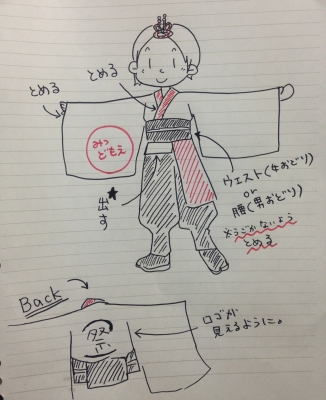 とめる
とめる
みつ
どもえ
★
出す
ウエスト(女おどり)
or
腰(男おどり)
※うごかないよう
とめる
Back
祭
ロゴが
見えるように。